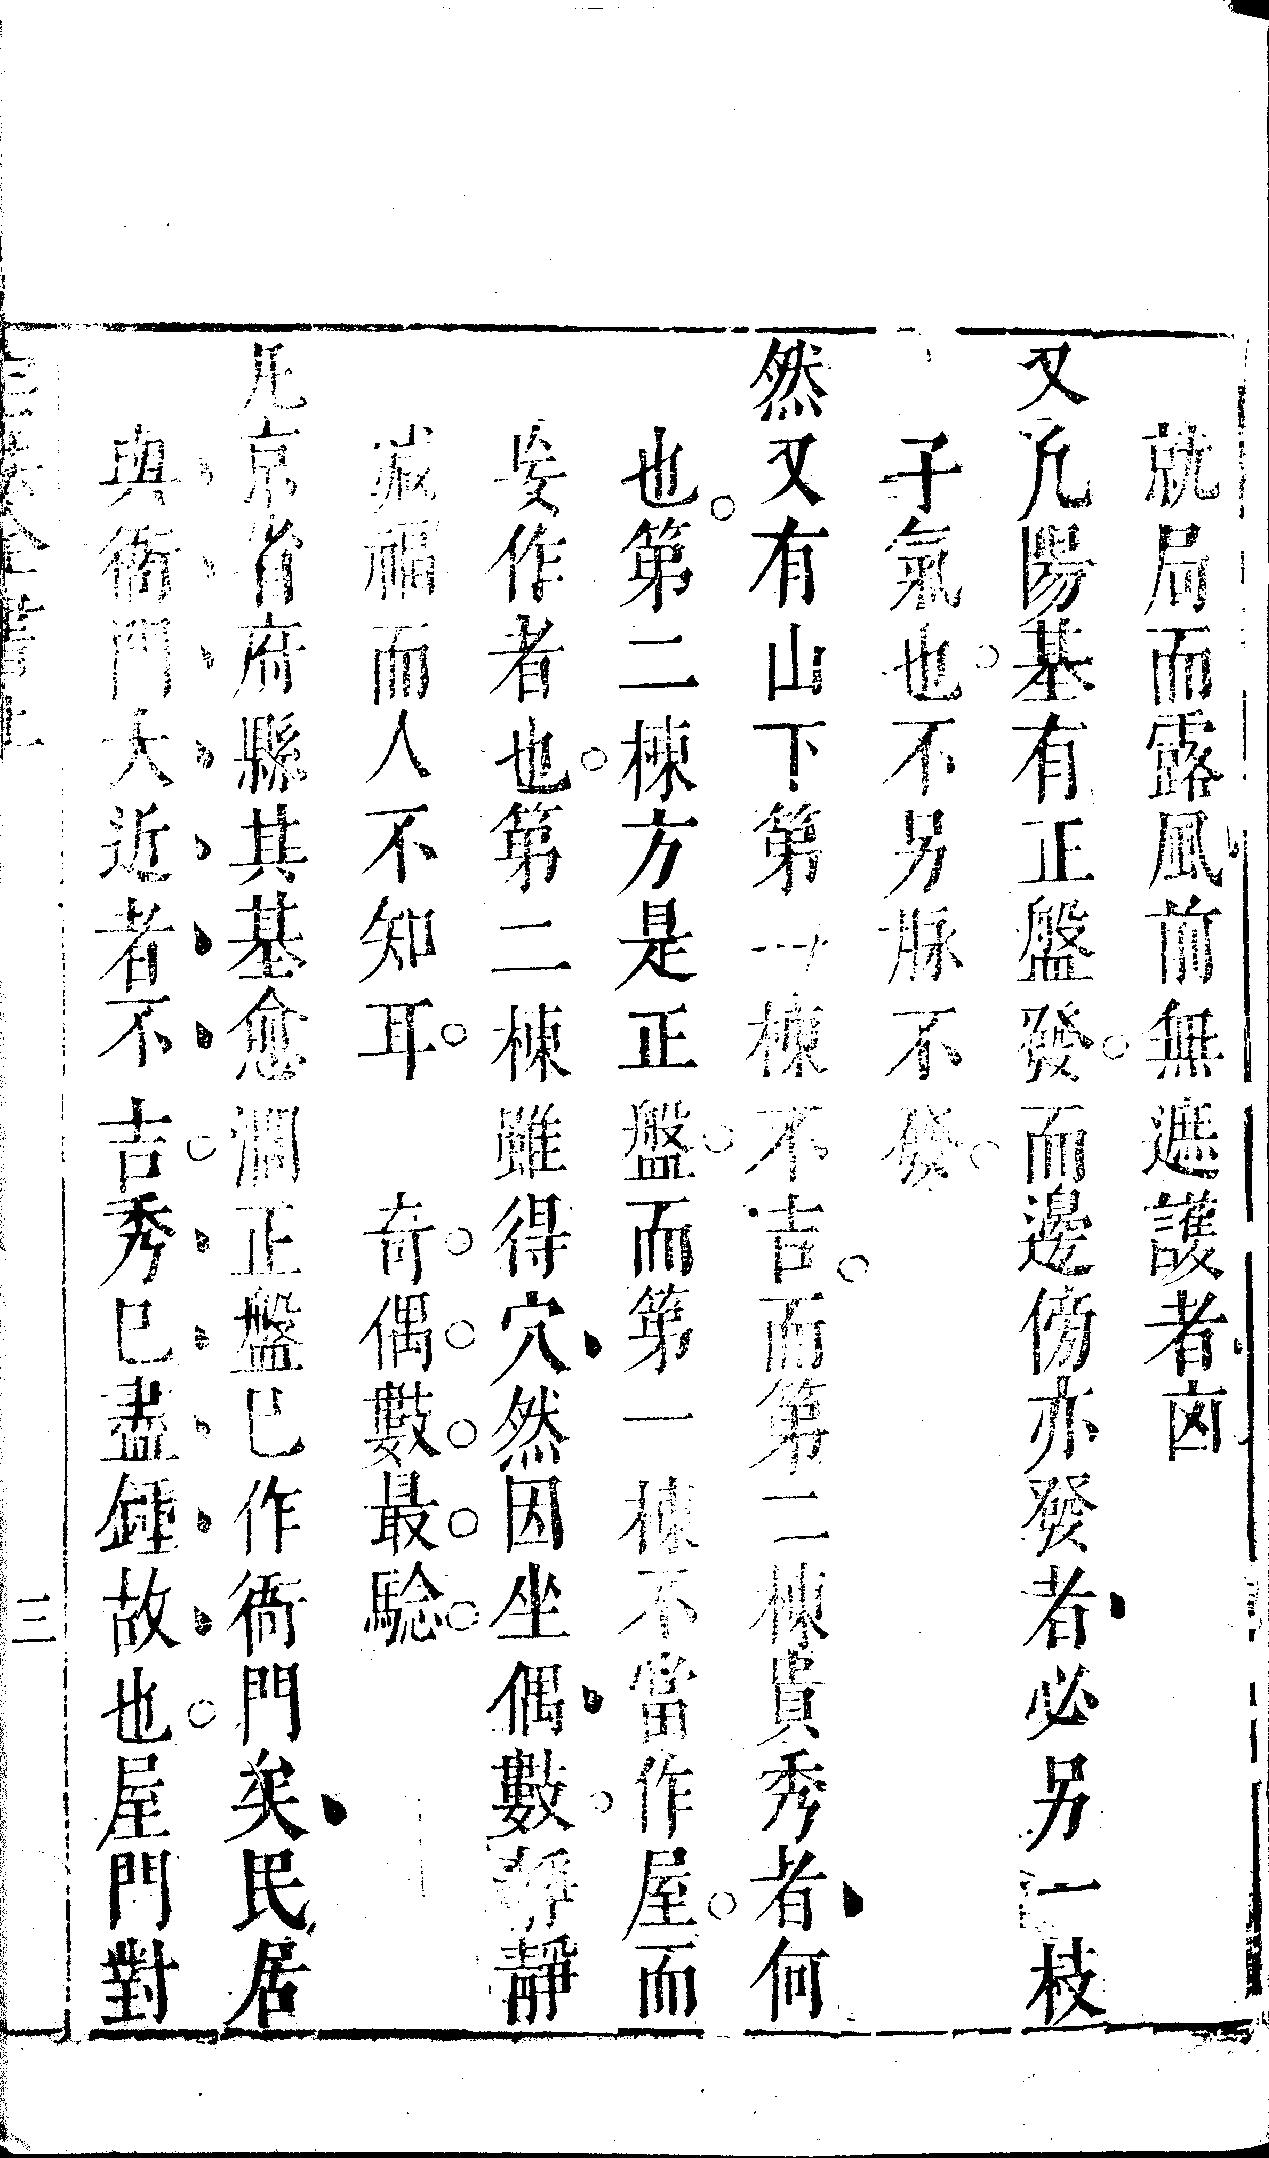 就局而露風前無遮護者凶
又凡陽基有正盤發而邊傍亦發者必另一枝
子氣也不另脉不發
然又有山下第一棟不吉而第二棟貴秀者何
也第二棟方是正盤而第一棟不當作屋而
妄作者也第二棟雖得穴然因坐偶數靜
減福而人不知耳 奇偶數最騐
凡京省府縣其基愈濶正盤已作衙門矣民居
與衙門大近者不吉秀已盡鍾故也屋門對
三